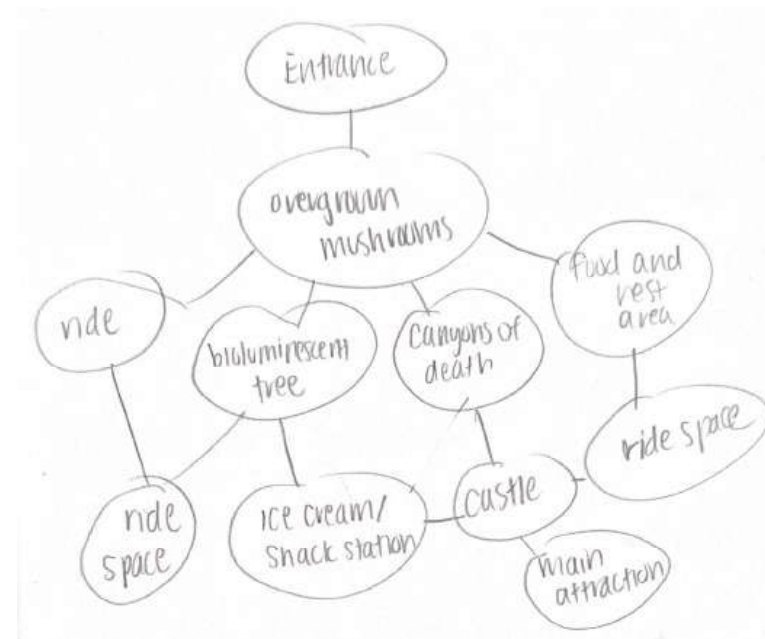 Entrance
overgrown
mushrooms
ride
bioluminescent
tree
canyons of
death
food and
rest
area
ride
space
ice cream/
snack station
castle
ride space
main
attraction